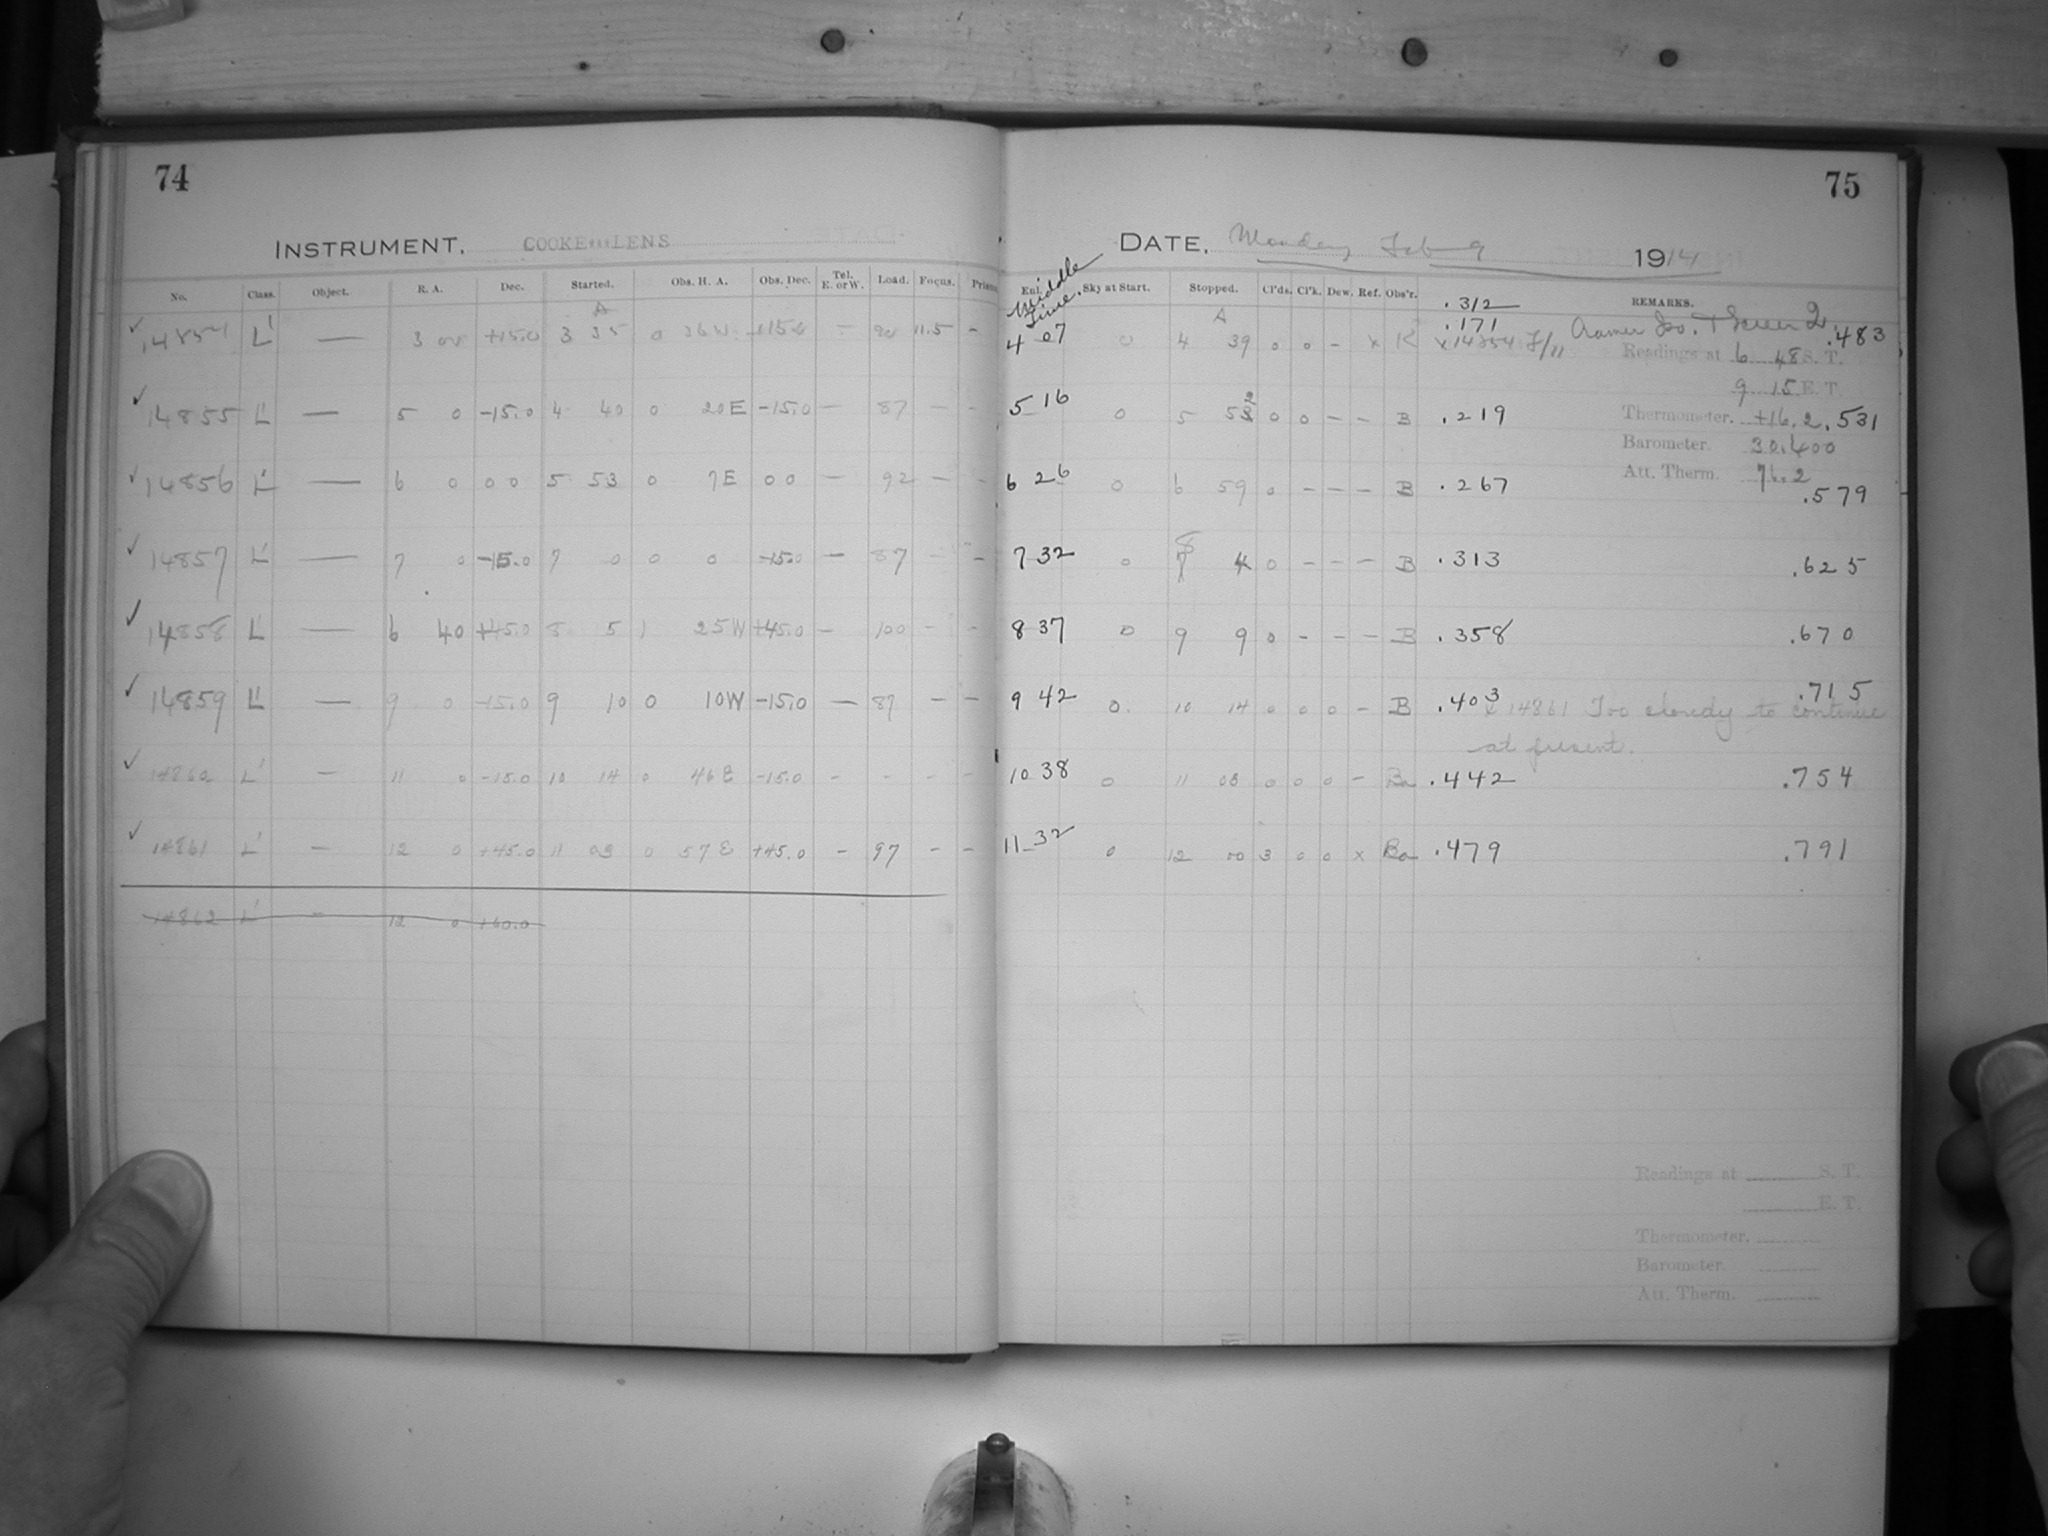 74
INSTRUMENT. COOKE LENS
No. Class. Object. R. A. Dec. Started. Obs. H. A. Obs. Dec. Tel. E. or W. Load. Focus.
A
14854 L' — 3 +15.0 3 35 0 36 W. +15.0 — 90 11.5 -
14855 L' — 5 0 -15.0 4 40 0 20 E -15.0 — 87 - -
14856 L' — 6 0 0 0 5 53 0 7 E 0 0 — 92 - -
14857 L' — 7 0 -15.0 7 0 0 0 -15.0 — 87 - -
14858 L' — 6 40 +45.0 8 5 1 25 W +45.0 — 100 - -
14859 L' — 9 0 -15.0 9 10 0 10 W -15.0 — 87 - -
14860 L' — 11 0 -15.0 10 14 0 46 E -15.0 - - - -
14861 L' — 12 0 +45.0 11 03 0 57 E +45.0 - 97 - -
14862 L' - 12 0 +60.0
75
DATE. Monday Feb 9 1914
Middle Time.
Sky at Start. Stopped. Cl'ds. Cl'k. Dew. Ref. Obs'r. REMARKS.
.312
.171
4 07 0 A 4 39 0 0 - x K x 14854 F/11 Cramer Iso. + Screen 2 .483
Readings at 6 48 S. T.
9 15 E. T.
5 16 0 5 52 0 0 - - B .219 Thermometer. +16.2 .531
Barometer. 30.400
Att. Therm. 76.2
6 26 0 6 59 0 - - - B .267 .579
7 32 0 8 4 0 - - - B .313 .625
8 37 0 9 9 0 - - - B .358 .670
9 42 0. 10 14 0 0 0 - B .403 .715
x 14861 Too cloudy to continue
at present.
10 38 0 11 03 0 0 0 - Ba .442 .754
11 32 0 12 00 3 0 0 x Ba .479 .791
Readings at S. T.
E. T.
Thermometer.
Barometer.
Att. Therm.